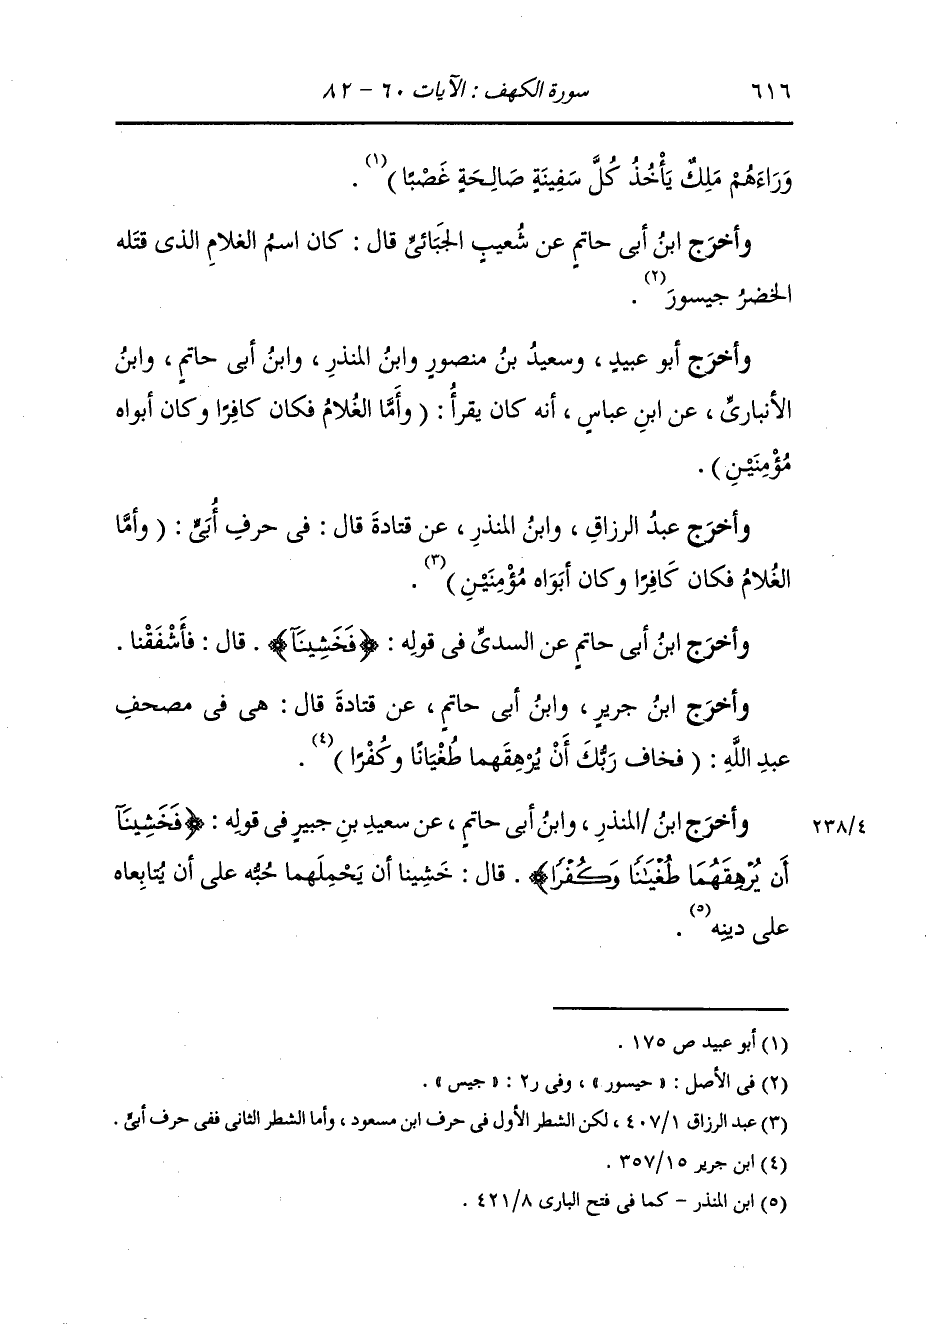 ٦١٦ سورة الكهف : الآيات ٦٠ - ٨٢
وَرَاءَهُمْ مَلِكٌ يَأْخُذُ كُلَّ سَفِينَةٍ صَالِحَةٍ غَصْبًا)(١) .
وأخرَج ابنُ أبى حاتمٍ عن شُعيبٍ الجَبَائىِّ قال : كان اسمُ الغلامِ الذى قتَله
الخضرُ جيسورَ(٢) .
وأخرَج أبو عبيدٍ ، وسعيدُ بنُ منصورٍ وابنُ المنذرِ ، وابنُ أبى حاتمٍ ، وابنُ
الأنبارىِّ ، عن ابنِ عباسٍ ، أنه كان يقرأُ : ( وأَمَّا الغُلامُ فكان كافِرًا وكان أبواه
مُؤْمِنَيْنِ ) .
وأخرَج عبدُ الرزاقِ ، وابنُ المنذرِ ، عن قتادةَ قال : فى حرفِ أُبَىٍّ : ( وأمَّا
الغُلامُ فكان كَافِرًا وكان أبَوَاه مُؤْمِنَيْنِ )(٣) .
وأخرَج ابنُ أبى حاتمٍ عن السدىِّ فى قولِه : ﴿فَخَشِينَآ﴾ . قال : فأَشْفَقْنا .
وأخرَج ابنُ جريرٍ ، وابنُ أبى حاتمٍ ، عن قتادةَ قال : هى فى مصحفِ
عبدِ اللَّهِ : ( فخاف رَبُّكَ أَنْ يُرْهِقَهما طُغْيَانًا وكُفْرًا )(٤) .
وأخرَج ابنُ /المنذرِ ، وابنُ أبى حاتمٍ ، عن سعيدِ بنِ جبيرٍ فى قولِه : ﴿فَخَشِينَآ ٢٣٨/٤
أَن يُرْهِقَهُمَا طُغْيَٰنًا وَكُفْرًا﴾ . قال : خَشِينا أن يَحْمِلَهما حُبُّه على أن يُتابِعاه
على دينِه(٥) .
(١) أبو عبيد ص ١٧٥ .
(٢) فى الأصل : « حيسور » ، وفى ر٢ : « جيس » .
(٣) عبد الرزاق ٤٠٧/١ ، لكن الشطر الأول فى حرف ابن مسعود ، وأما الشطر الثانى ففى حرف أبىٍّ .
(٤) ابن جرير ٣٥٧/١٥ .
(٥) ابن المنذر - كما فى فتح البارى ٤٢١/٨ .